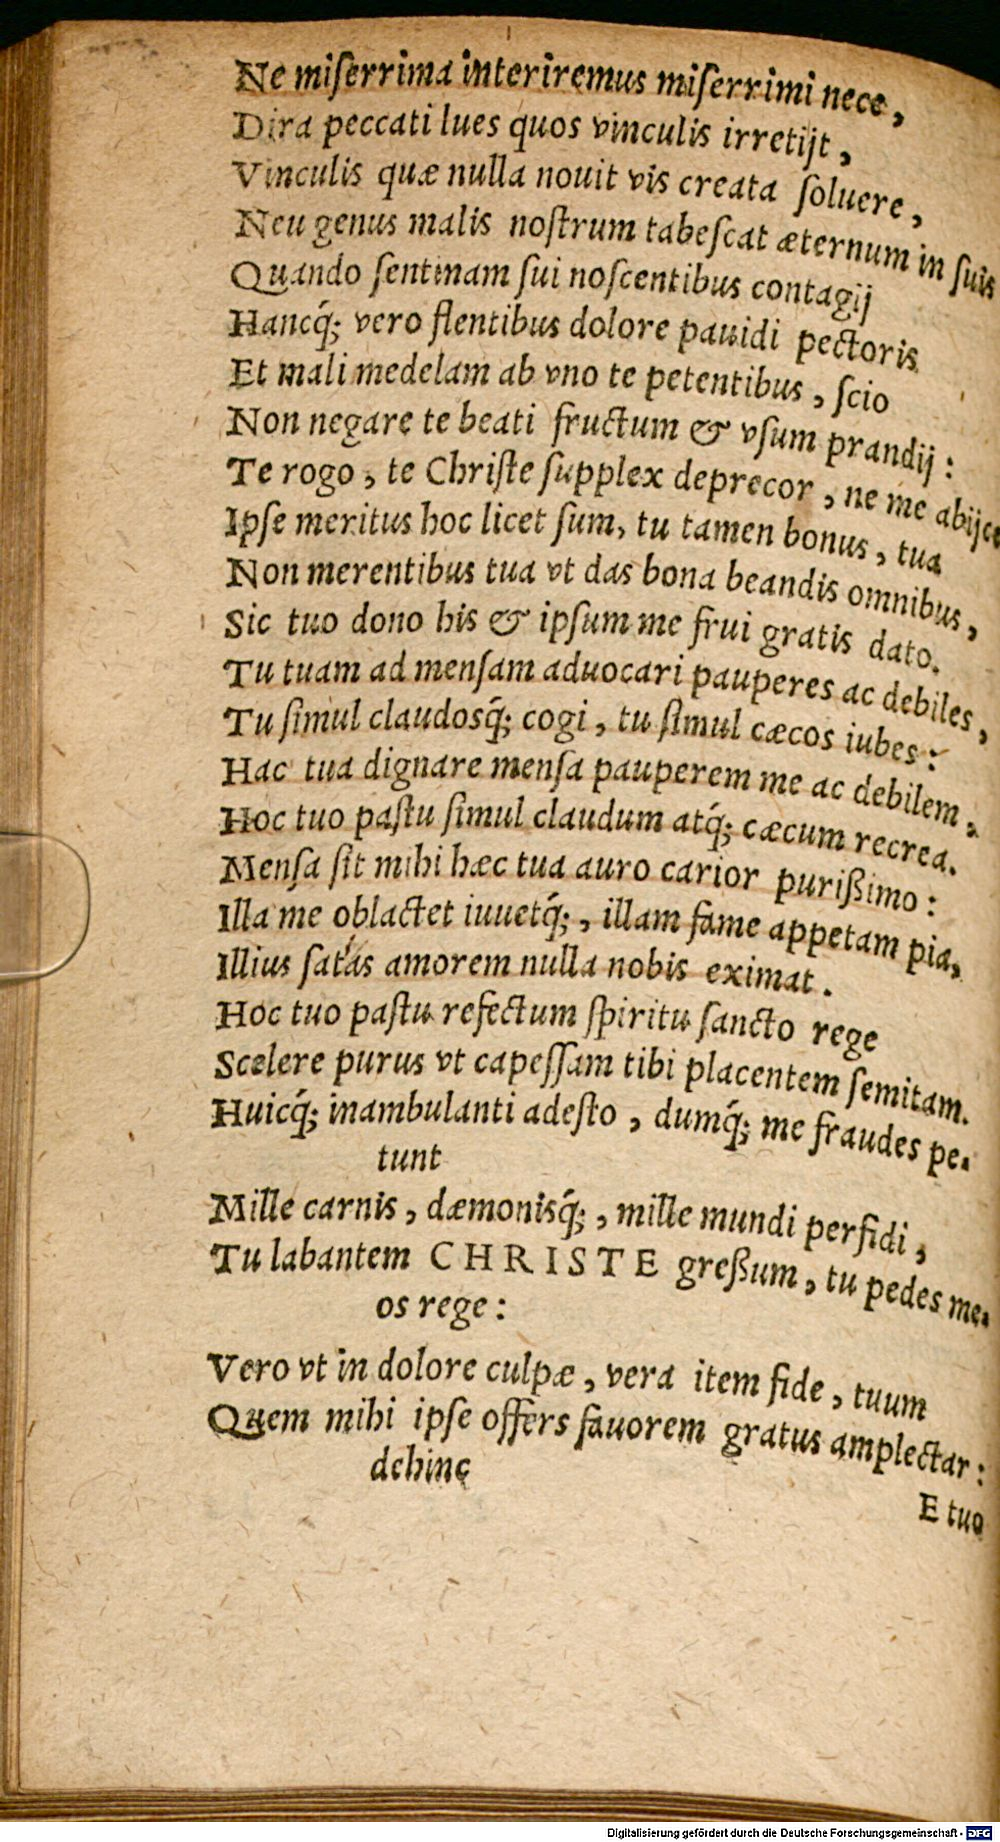 Ne miſerrima interiremus miſerrimi nece,
Dira peccati lues quos vinculis irretijt,
Vinculis quæ nulla nouit vis creata ſoluere,
Neu genus malis noſtrum tabeſcat æternum in ſuis
Quando ſentinam ſui noſcentibus contagij
Hancq́; vero flentibus dolore pauidi pectoris
Et mali medelam ab vno te petentibus, ſcio
Non negare te beati fructum & vſum prandij:
Te rogo, te Chriſte ſupplex deprecor, ne me abijce
Ipſe meritus hoc licet ſum, tu tamen bonus, tua
Non merentibus tua vt das bona beandis omnibus,
Sic tuo dono his & ipſum me frui gratis dato.
Tu tuam ad menſam aduocari pauperes ac debiles,
Tu ſimul claudosq́; cogi, tu ſimul cæcos iubes:
Hac tua dignare menſa pauperem me ac debilem,
Hoc tuo paſtu ſimul claudum atq́; cæcum recrea.
Menſa ſit mihi hæc tua auro carior purißimo:
Illa me oblactet iuuetq́;, illam fame appetam pia,
Illius ſatás amorem nulla nobis eximat.
Hoc tuo paſtu refectum ſpiritu ſancto rege
Scelere purus vt capeſſam tibi placentem ſemitam.
Huicq́; inambulanti adeſto, dumq́; me fraudes pe-
tunt
Mille carnis, dæmonisq́;, mille mundi perfidi,
Tu labantem CHRISTE greßum, tu pedes me-
os rege:
Vero vt in dolore culpæ, vera item fide, tuum
Quem mihi ipſe offers fauorem gratus amplectar:
dehinc
E tuo
Digitalisierung gefördert durch die Deutsche Forschungsgemeinschaft - DFG